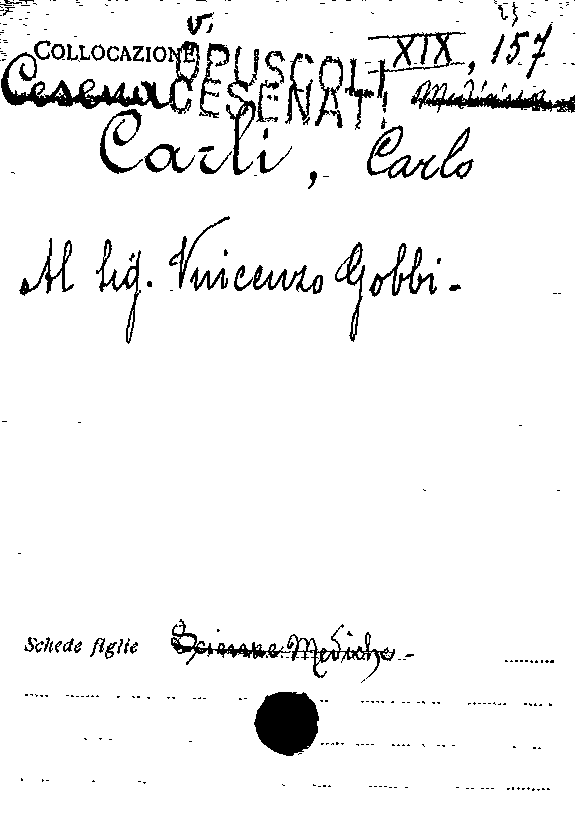 v.
COLLOCAZIONE OPUSCOLI XIX, 157
Cesena CESENATI Medicina
Carli, Carlo
Al Sig. Vincenzo Gobbi.
Schede figlie Scienze Mediche -